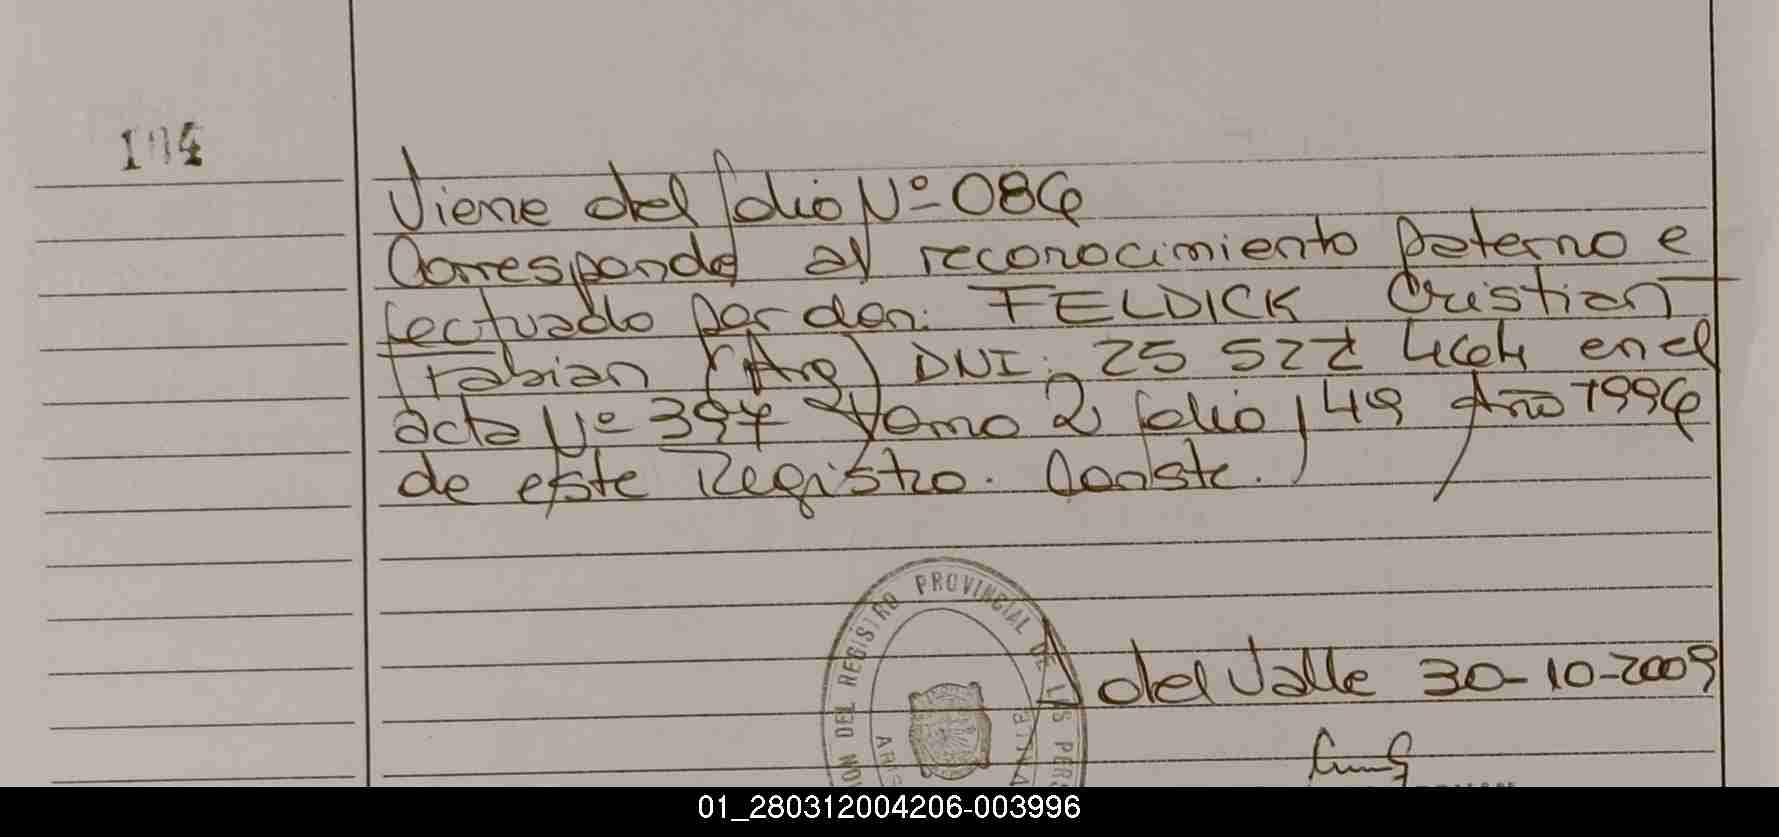 104
Viene del folio Nº 086
Corresponde al reconocimiento paterno e
fectuado por don: FELDICK Cristian
Fabian (Arg) DNI: 25 522 464 en el
acta Nº 397 Tomo 2 folio 149 Año 1996
de este Registro. Conste.
PROVINCIAL DE LAS PERS
ION DEL REGISTRO
A del Valle 30-10-2009
01_280312004206-003996